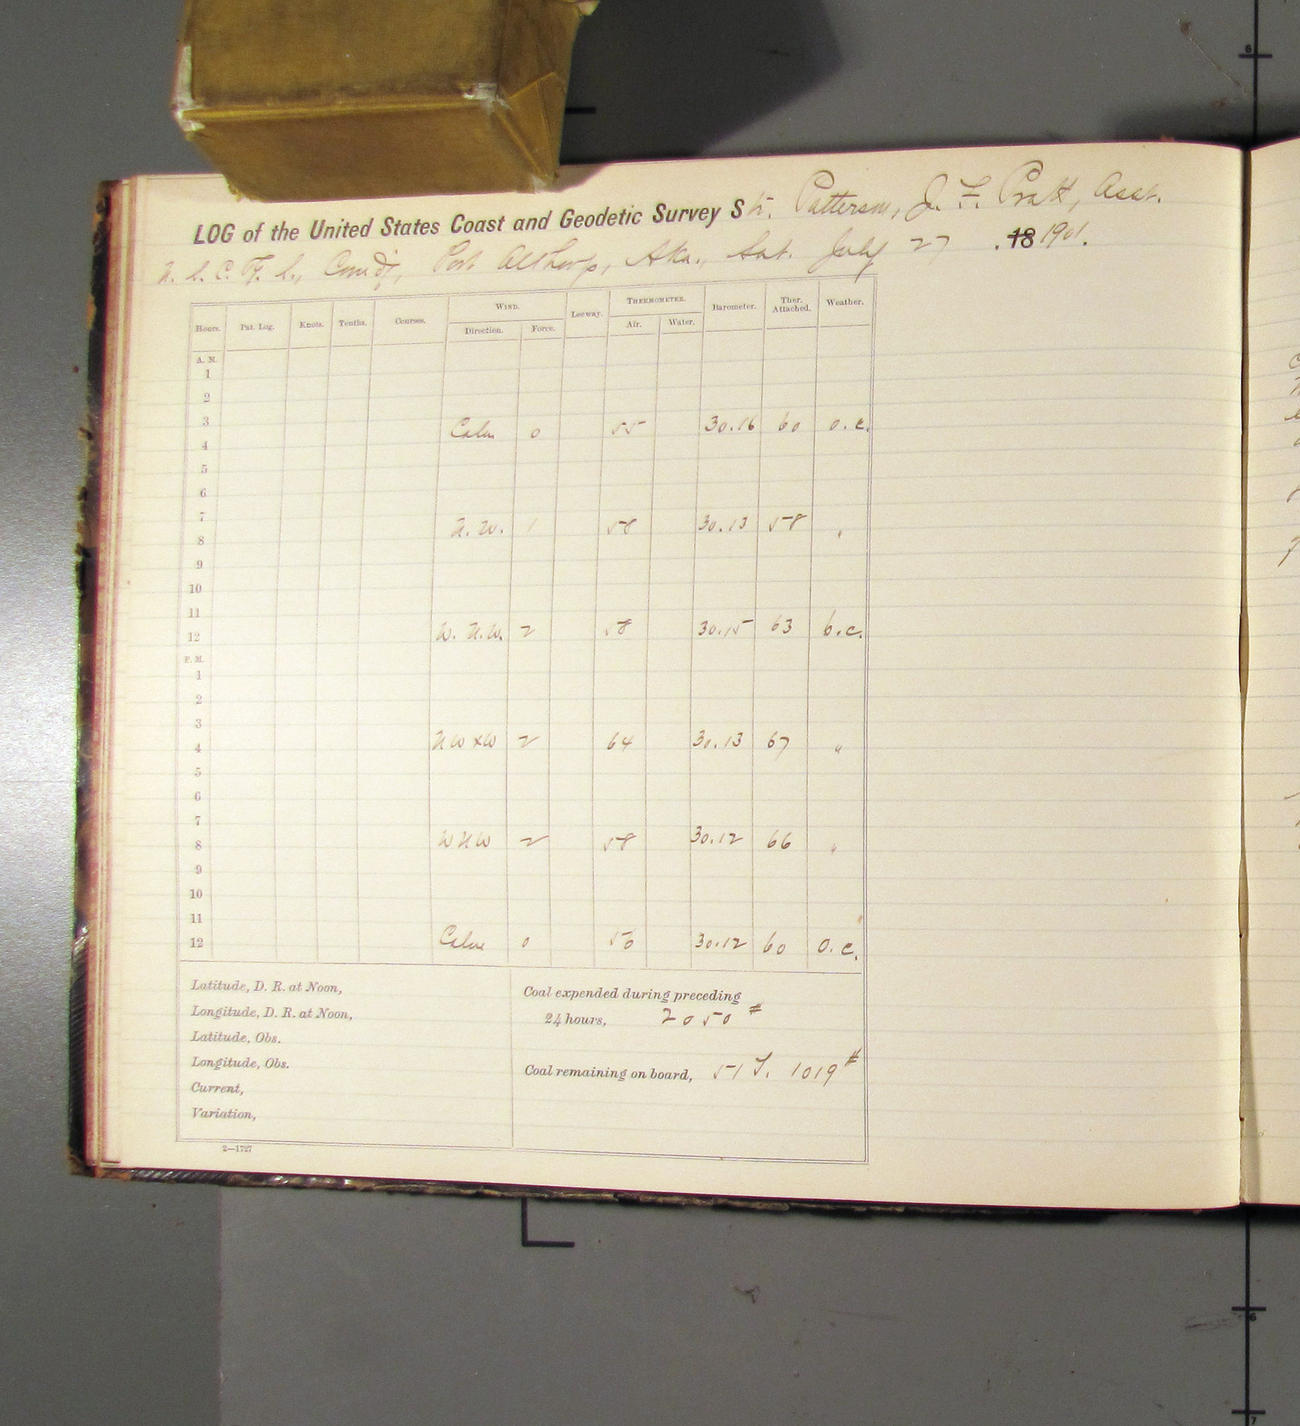 LOG of the United States Coast and Geodetic Survey Str. Patterson, J. F. Pratt, Asst.
Comd'g, Port Althorp, Aka., Sat. July 27, 18 1901.
Hours. Pat. Log. Knots. Tenths. Courses. WIND. Leeway. THERMOMETER. Barometer. Ther. Attached. Weather.
Direction. Force. Air. Water.
A. M.
1
2
3
Calm 0 55 30.16 60 o.c.
4
5
6
7
N.W. 1 58 30.13 58 "
8
9
10
11
12 W.N.W. 2 58 30.15 63 b.c.
P. M.
1
2
3
4 NWxW 2 64 30.13 67 "
5
6
7
8 WNW 2 58 30.12 66 "
9
10
11
12 Calm 0 50 30.12 60 o.c.
Latitude, D. R. at Noon,
Longitude, D. R. at Noon,
Latitude, Obs.
Longitude, Obs.
Current,
Variation,
Coal expended during preceding
24 hours, 2050 #
Coal remaining on board, 51 T. 1019 #
2—1727
6
6
7